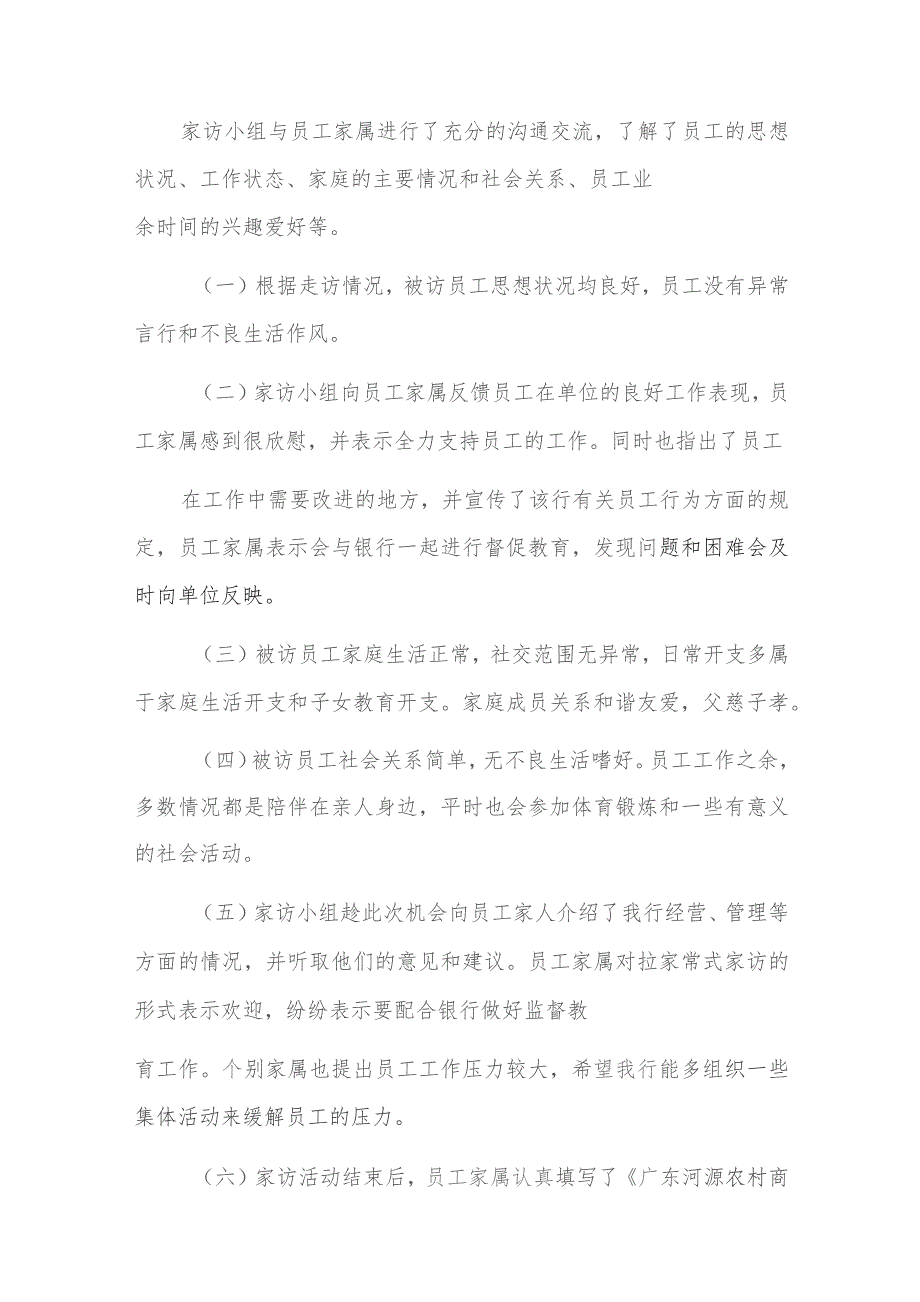 家访小组与员工家属进行了充分的沟通交流，了解了员工的思想
状况、工作状态、家庭的主要情况和社会关系、员工业
余时间的兴趣爱好等。
（一）根据走访情况，被访员工思想状况均良好，员工没有异常
言行和不良生活作风。
（二）家访小组向员工家属反馈员工在单位的良好工作表现，员
工家属感到很欣慰，并表示全力支持员工的工作。同时也指出了员工
在工作中需要改进的地方，并宣传了该行有关员工行为方面的规
定，员工家属表示会与银行一起进行督促教育，发现问题和困难会及
时向单位反映。
（三）被访员工家庭生活正常，社交范围无异常，日常开支多属
于家庭生活开支和子女教育开支。家庭成员关系和谐友爱，父慈子孝。
（四）被访员工社会关系简单，无不良生活嗜好。员工工作之余，
多数情况都是陪伴在亲人身边，平时也会参加体育锻炼和一些有意义
的社会活动。
（五）家访小组趁此次机会向员工家人介绍了我行经营、管理等
方面的情况，并听取他们的意见和建议。员工家属对拉家常式家访的
形式表示欢迎，纷纷表示要配合银行做好监督教
育工作。个别家属也提出员工工作压力较大，希望我行能多组织一些
集体活动来缓解员工的压力。
（六）家访活动结束后，员工家属认真填写了《广东河源农村商